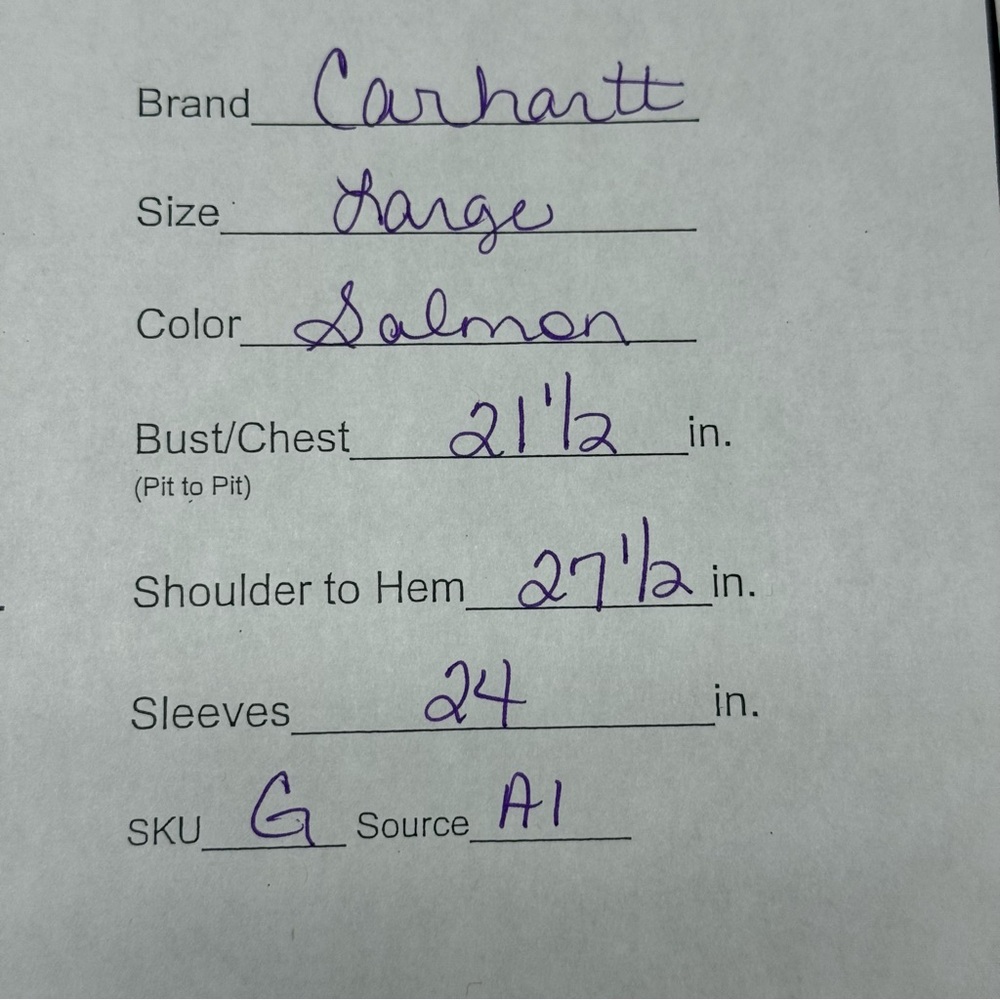 Brand Carhartt
Size Large
Color Salmon
Bust/Chest 21 1/2 in.
(Pit to Pit)
Shoulder to Hem 27 1/2 in.
Sleeves 24 in.
SKU G Source A1